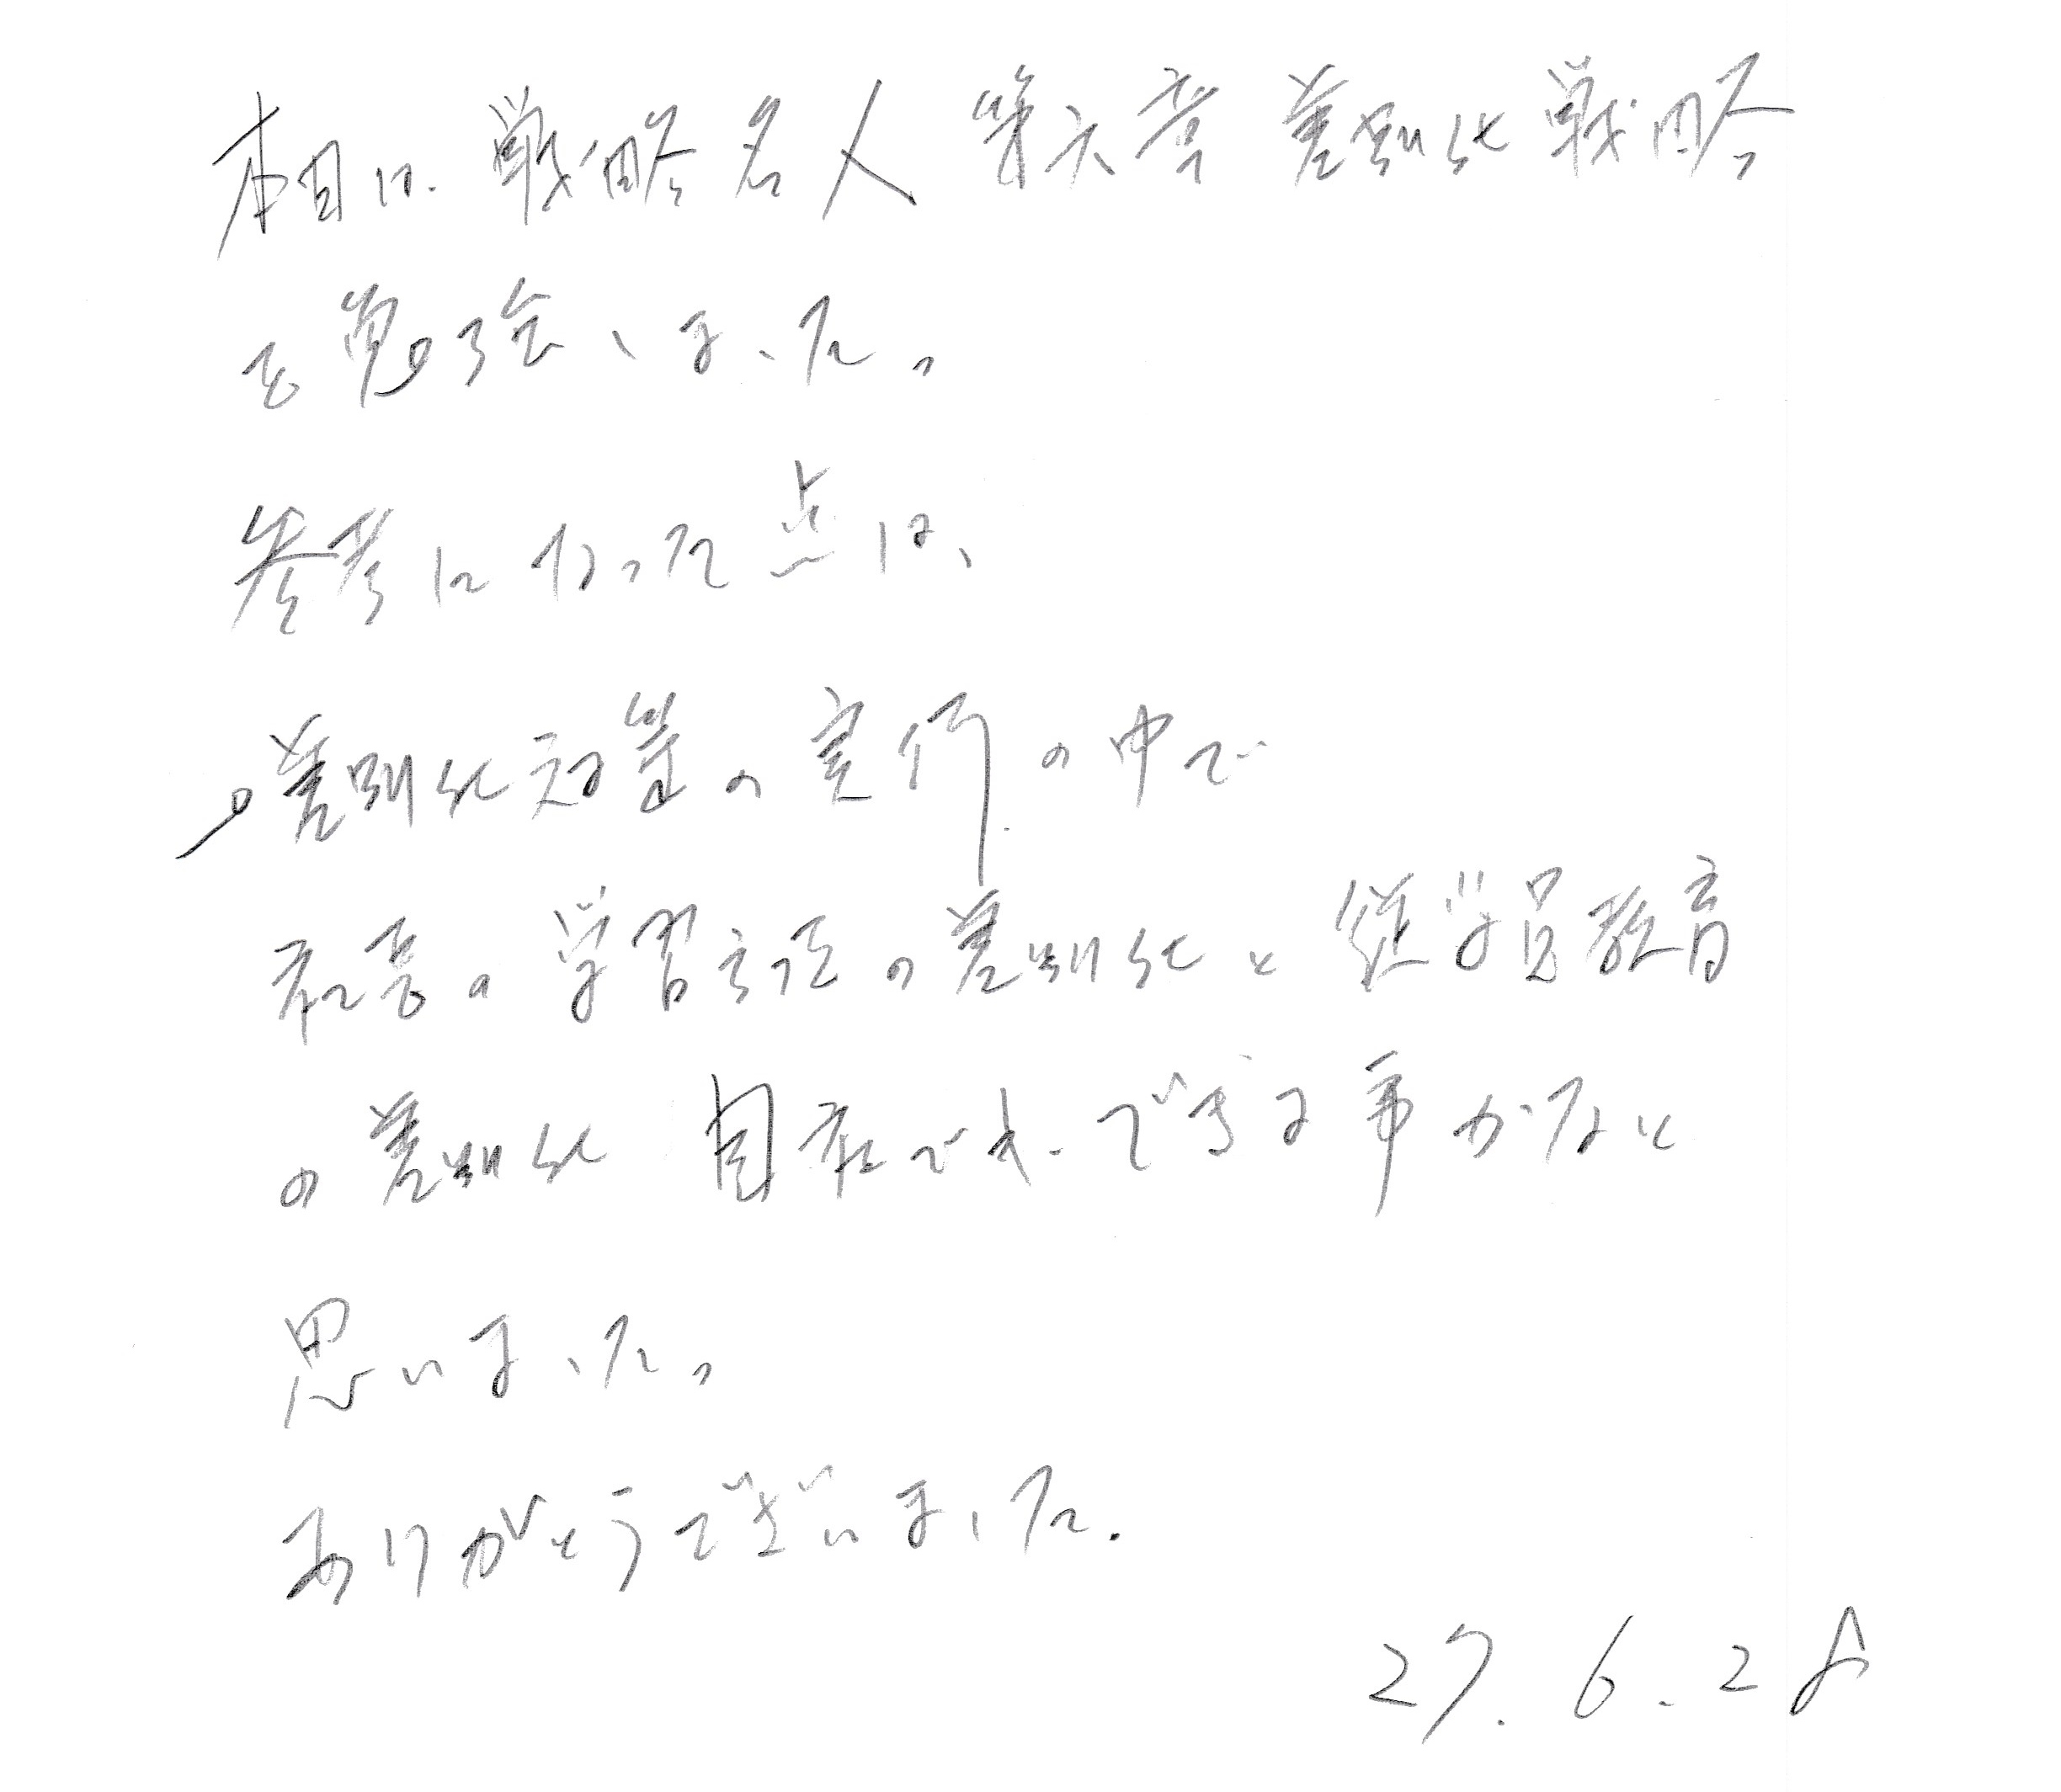 本日は、戦略名人 第六章 差別化戦略
を勉強しました。
参考になった点は、
差別化対策の実行の中で
社長の学習方法の差別化と従業員教育
の差別化 自社でも、できる事かなと
思いました。
ありがとうございました.
27.6.28